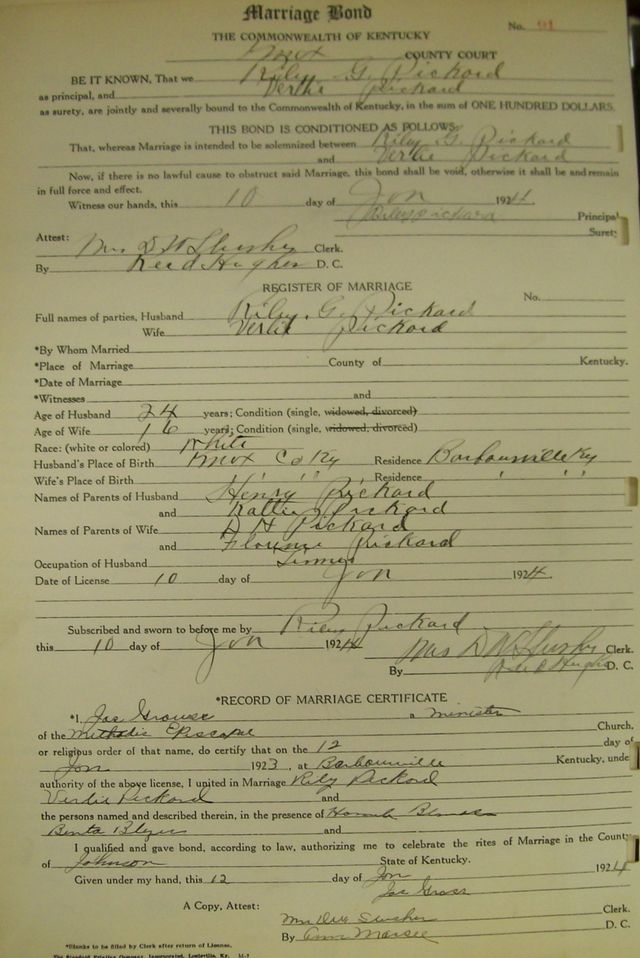 Marriage Bond
No. 91
THE COMMONWEALTH OF KENTUCKY
Knox COUNTY COURT
BE IT KNOWN, That we Riley G. Pickard
as principal, and Verlie Pickard
as surety, are jointly and severally bound to the Commonwealth of Kentucky, in the sum of ONE HUNDRED DOLLARS.
THIS BOND IS CONDITIONED AS FOLLOWS:
That, whereas Marriage is intended to be solemnized between Riley G Pickard
and Verlie Pickard
Now, if there is no lawful cause to obstruct said Marriage, this bond shall be void, otherwise it shall be and remain
in full force and effect.
Witness our hands, this 10 day of Jan 1924.
Riley Pickard Principal
Surety
Attest: Mrs D W Slusher Clerk.
By Reed Hughes D. C.
REGISTER OF MARRIAGE
No.
Full names of parties, Husband Riley. G. Pickard
Wife Verlie Pickard
*By Whom Married
*Place of Marriage County of Kentucky.
*Date of Marriage
*Witnesses and
Age of Husband 24 years; Condition (single, widowed, divorced)
Age of Wife 16 years; Condition (single, widowed, divorced)
Race: (white or colored) White
Husband's Place of Birth Knox Co Ky Residence Barbourville Ky
Wife's Place of Birth " " " Residence " " "
Names of Parents of Husband Henry Pickard
and Pickard
Names of Parents of Wife D H Pickard
and Florence Pickard
Occupation of Husband
Date of License 10 day of Jan 1924.
Subscribed and sworn to before me by Riley Pickard
this 10 day of Jan 1924
Mrs D W Slusher Clerk.
By Reed Hughes D. C.
*RECORD OF MARRIAGE CERTIFICATE
*I, Jas Grouse a minister
of the Methodic Episcopal Church,
or religious order of that name, do certify that on the 12 day of
Jan 1923, at Barbourville Kentucky, unde
authority of the above license, I united in Marriage Riley Pickard
Verlie Pickard and
the persons named and described therein, in the presence of
and
I qualified and gave bond, according to law, authorizing me to celebrate the rites of Marriage in the County
of Johnson State of Kentucky.
Given under my hand, this 12 day of Jan 1924
Jas Gross
A Copy, Attest: Mrs D W Slusher Clerk.
By Ann Marsee D. C.
*Blanks to be filled by Clerk after return of License.
The Standard Printing Company, Incorporated, Louisville, Ky.